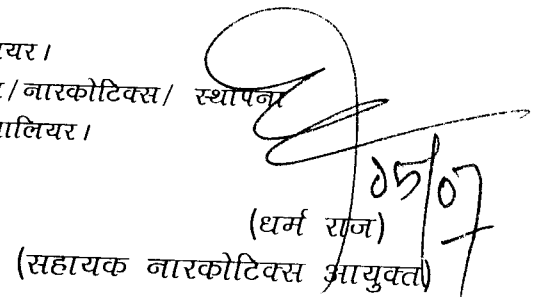 यर।
/नारकोटिक्स/ स्थापना
ालियर।
05/07
(धर्म राज)
(सहायक नारकोटिक्स आयुक्त)